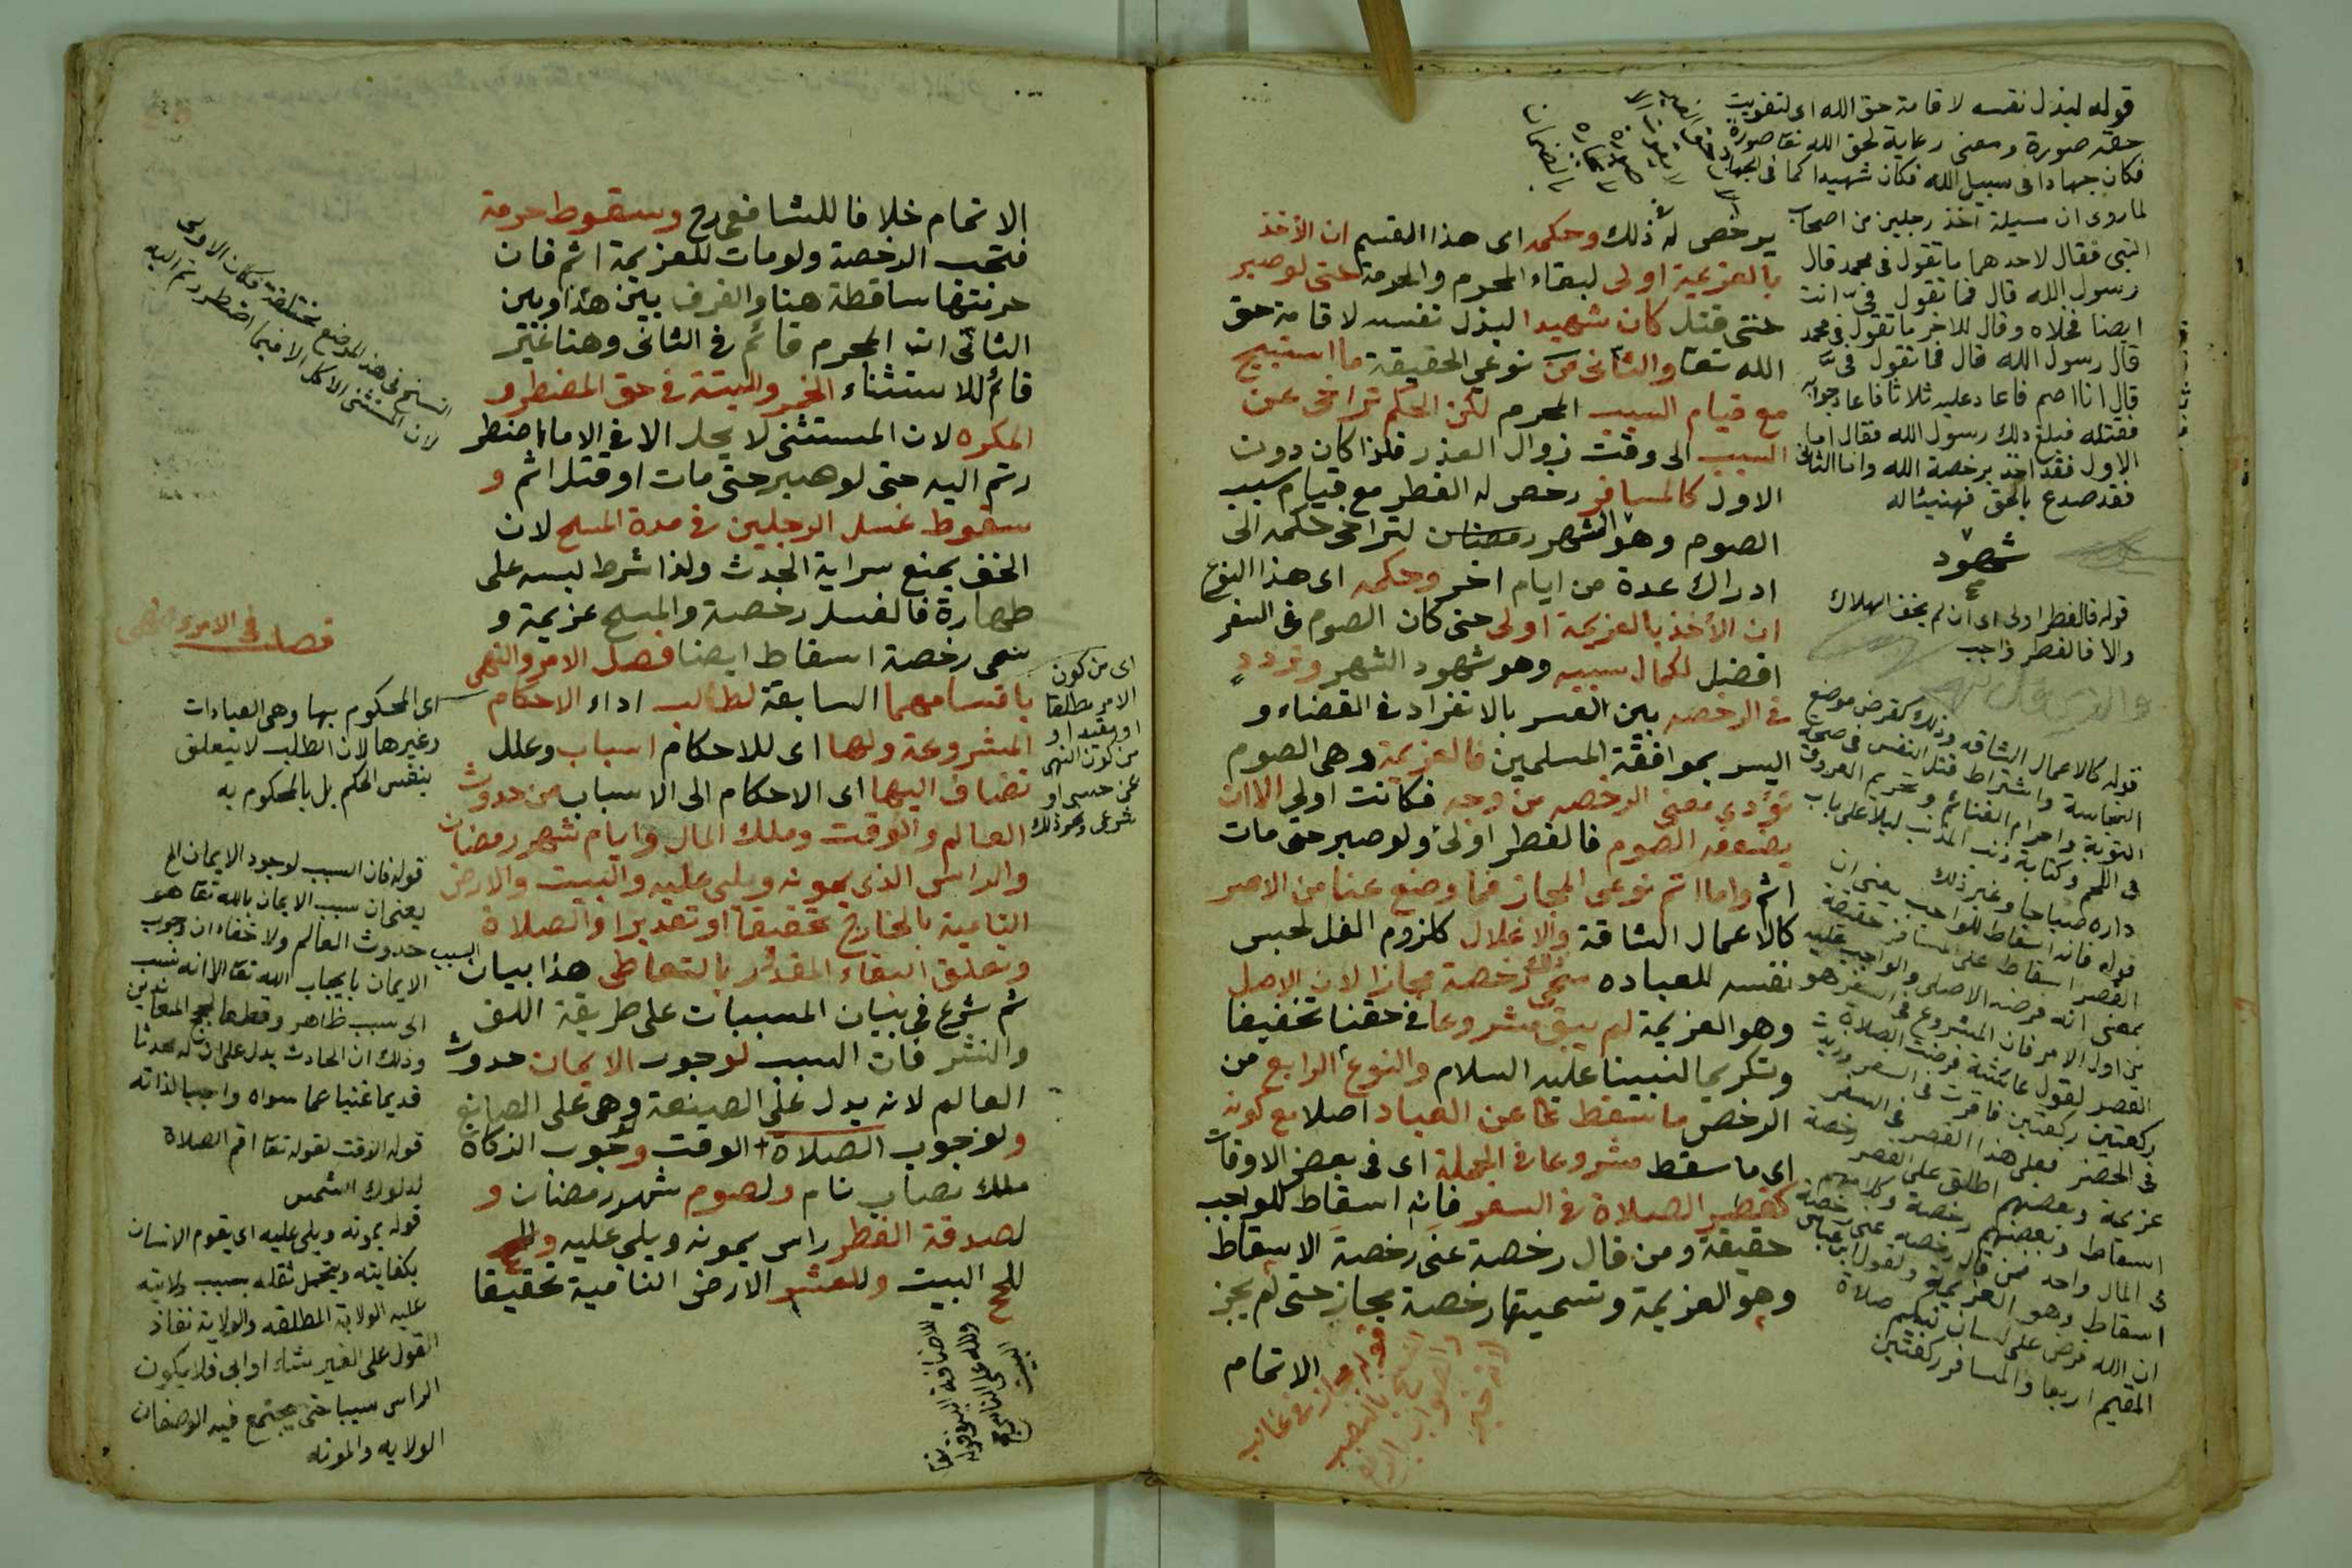 يرخص له ذلك وحكمه اى هذا القسم ان الأخذ
بالعزيمة اولى لبقاء المحرم والحرمة حتى لو صبر
حتى قتل كان شهيدا لبذل نفسه لاقامة حق
الله تعا والثانى من نوعى الحقيقة ما استبيح
مع قيام السبب المحرم لكن الحكم تراخى عن
السبب الى وقت زوال العذر فلذا كان دون
الاول كالمسافر رخص له الفطر مع قيام سبب
الصوم وهو الشهر رمضان لتراخى حكمه الى
ادراك عدة من ايام اخر وحكمه اى هذا النوع
ان الأخذ بالعزيمة اولى حتى كان الصوم فى السفر
افضل لكمال سببه وهو شهود الشهر وتردد
فى الرخصه بين العسر بالانفراد فى القضاء و
اليسر بموافقة المسلمين فالعزيمة وهى الصوم
تؤدي معنى الرخصه من وجه فكانت اولي الا ان
يضعفه الصوم فالفطر اولى ولو صبر حتى مات
اثم واما اتم نوعى المجاز فما وضع عنا من الاصر
كالاعمال الشاقة والاغلال كلزوم الغل لحبس
نفسه للعباده سمى ذلك رخصة مجازا لان الاصل
وهو العزيمة لم يبق مشروعا فى حقنا تخفيفا
وتكريما لنبينا عليه السلام والنوع الرابع من
الرخص ما سقط عن العباد اصلا مع كونه
اى ما سقط مشروعا فى الجملة اى فى بعض الاوقات
كقصر الصلاة فى السفر فانه اسقاط للواجب
حقيقة ومن قال رخصة عنى رخصة الاسقاط
وهو العزيمة وتسميتها رخصة مجاز حتى لم يجز
الاتمام
قوله لبذل نفسه لاقامة حق الله اى لتفويت
حقه صورة ومعنى رعاية لحق الله تعا صورة
فكان جهادا فى سبيل الله فكان شهيدا كما فى الجهاد
لما روى ان مسيلة اخذ رجلين من اصحاب
النبى فقال لاحدهما ما تقول فى محمد قال
رسول الله قال فما تقول فى انت
ايضا فخلاه وقال للاخر ما تقول فى محمد
قال رسول الله قال فما تقول فى
قال انا اصم فاعاد عليه ثلاثا فاعاد جوابه
فقتله فبلغ ذلك رسول الله فقال اما
الاول فقد اخذ برخصة الله واما الثانى
فقد صدع بالحق فهنيئا له
شهود
قوله فالفطر اولى اى ان لم يخف الهلاك
والا فالفطر واجب
قوله كالاعمال الشاقه وذلك كقرض موضع
النجاسة واشتراط قتل النفس فى صحة
التوبة واحرام الغنائم وتحريم العروق
فى اللحم وكتابة ذنب المذنب ليلا على باب
داره صباحا وغير ذلك
قوله فانه اسقاط للواجب يعنى ان
القصر اسقاط على المسافر حقيقة
بمعنى انه فرضه الاصلى والواجب عليه
من اول الامر فان المشروع فى السفر هو
القصر لقول عائشة فرضت الصلاة
ركعتين ركعتين فاقرت فى السفر وزيدت
فى الحضر فعلى هذا القصر فى السفر
عزيمة وبعضهم اطلق على القصر رخصة
اسقاط وبعضهم رخصة وكلامهم
فى المال واحد فمن قال رخصه عنى رخصة
اسقاط وهو العزيمة ولقول ابن عباس
ان الله فرض على لسان نبيكم صلاة
المقيم اربعا والمسافر ركعتين
الاتمام خلافا للشافعى رح وسقوط حرمة
فتحت الرخصة ولو مات للعزيمة اثم فان
حرمتها ساقطة هنا والفرق بين هذا وبين
الثانى ان المحرم قائم فى الثانى وهنا غير
قائم للاستثناء الخمر والميتة فى حق المضطر و
المكره لان المستثنى لا يحل الا فى الا ما اضطر
رتم اليه حتى لو صبر حتى مات او قتل اثم و
سقوط غسل الرجلين فى مدة المسح لان
الخف يمنع سراية الحدث ولذا شرط لبسه على
طهارة فالغسل رخصة والمسح عزيمة و
سمى رخصة اسقاط ايضا فصل الامر والنهى
باقسامهما السابقة لطلب اداء الاحكام
المشروعة ولها اى للاحكام اسباب وعلل
تضاف اليها اى الاحكام الى الاسباب من حدوث
العالم والوقت وملك المال وايام شهر رمضان
والراس الذى يمونه ويلى عليه والبيت والارض
النامية بالخارج تحقيقا او تقديرا والصلاة
وتعلق البقاء المقدور بالتعاطى هذا بيان السبب
ثم شرع فى بيان المسببات على طريقة اللف
والنشر فان السبب لوجوب الايمان حدوث
العالم لانه يدل على الصنعة وهى على الصانع
ولوجوب الصلاة الوقت وجوب الزكاة
ملك نصاب نام ولصوم شهر رمضان و
لصدقة الفطر راس يمونه ويلى عليه
للحج البيت وللعشر الارض النامية تحقيقا
فصل فى الامر
اى من كون
الامر مطلقا
او مقيدا و
من كون النهى
عن حسى او
شرعى ونحو ذلك
اى المحكوم بها وهى العبادات
وغيرها لان الطلب لا يتعلق
بنفس الحكم بل بالمحكوم به
قوله فان السبب لوجود الايمان الخ
يعنى ان سبب الايمان بالله تعا هو
حدوث العالم ولا خفاء ان وجوب
الايمان بايجاب الله تعا الا انه نسب
الى سبب ظاهر وقطعا لحجج المعاندين
وذلك ان الحادث يدل على ان له محدثا
قديما غنيا عما سواه واجبا لذاته
قوله الوقت لقوله تعا اقم الصلاة
لدلوك الشمس
قوله يمونه ويلى عليه اى يقوم الانسان
بكفايته ويتحمل ثقله بسبب ولايته
عليه الولاية المطلقه والولاية نفاذ
القول على الغير شاء او ابى فلا يكون
الراس سببا حتى يجتمع فيه الوصفان
الولايه والمونه